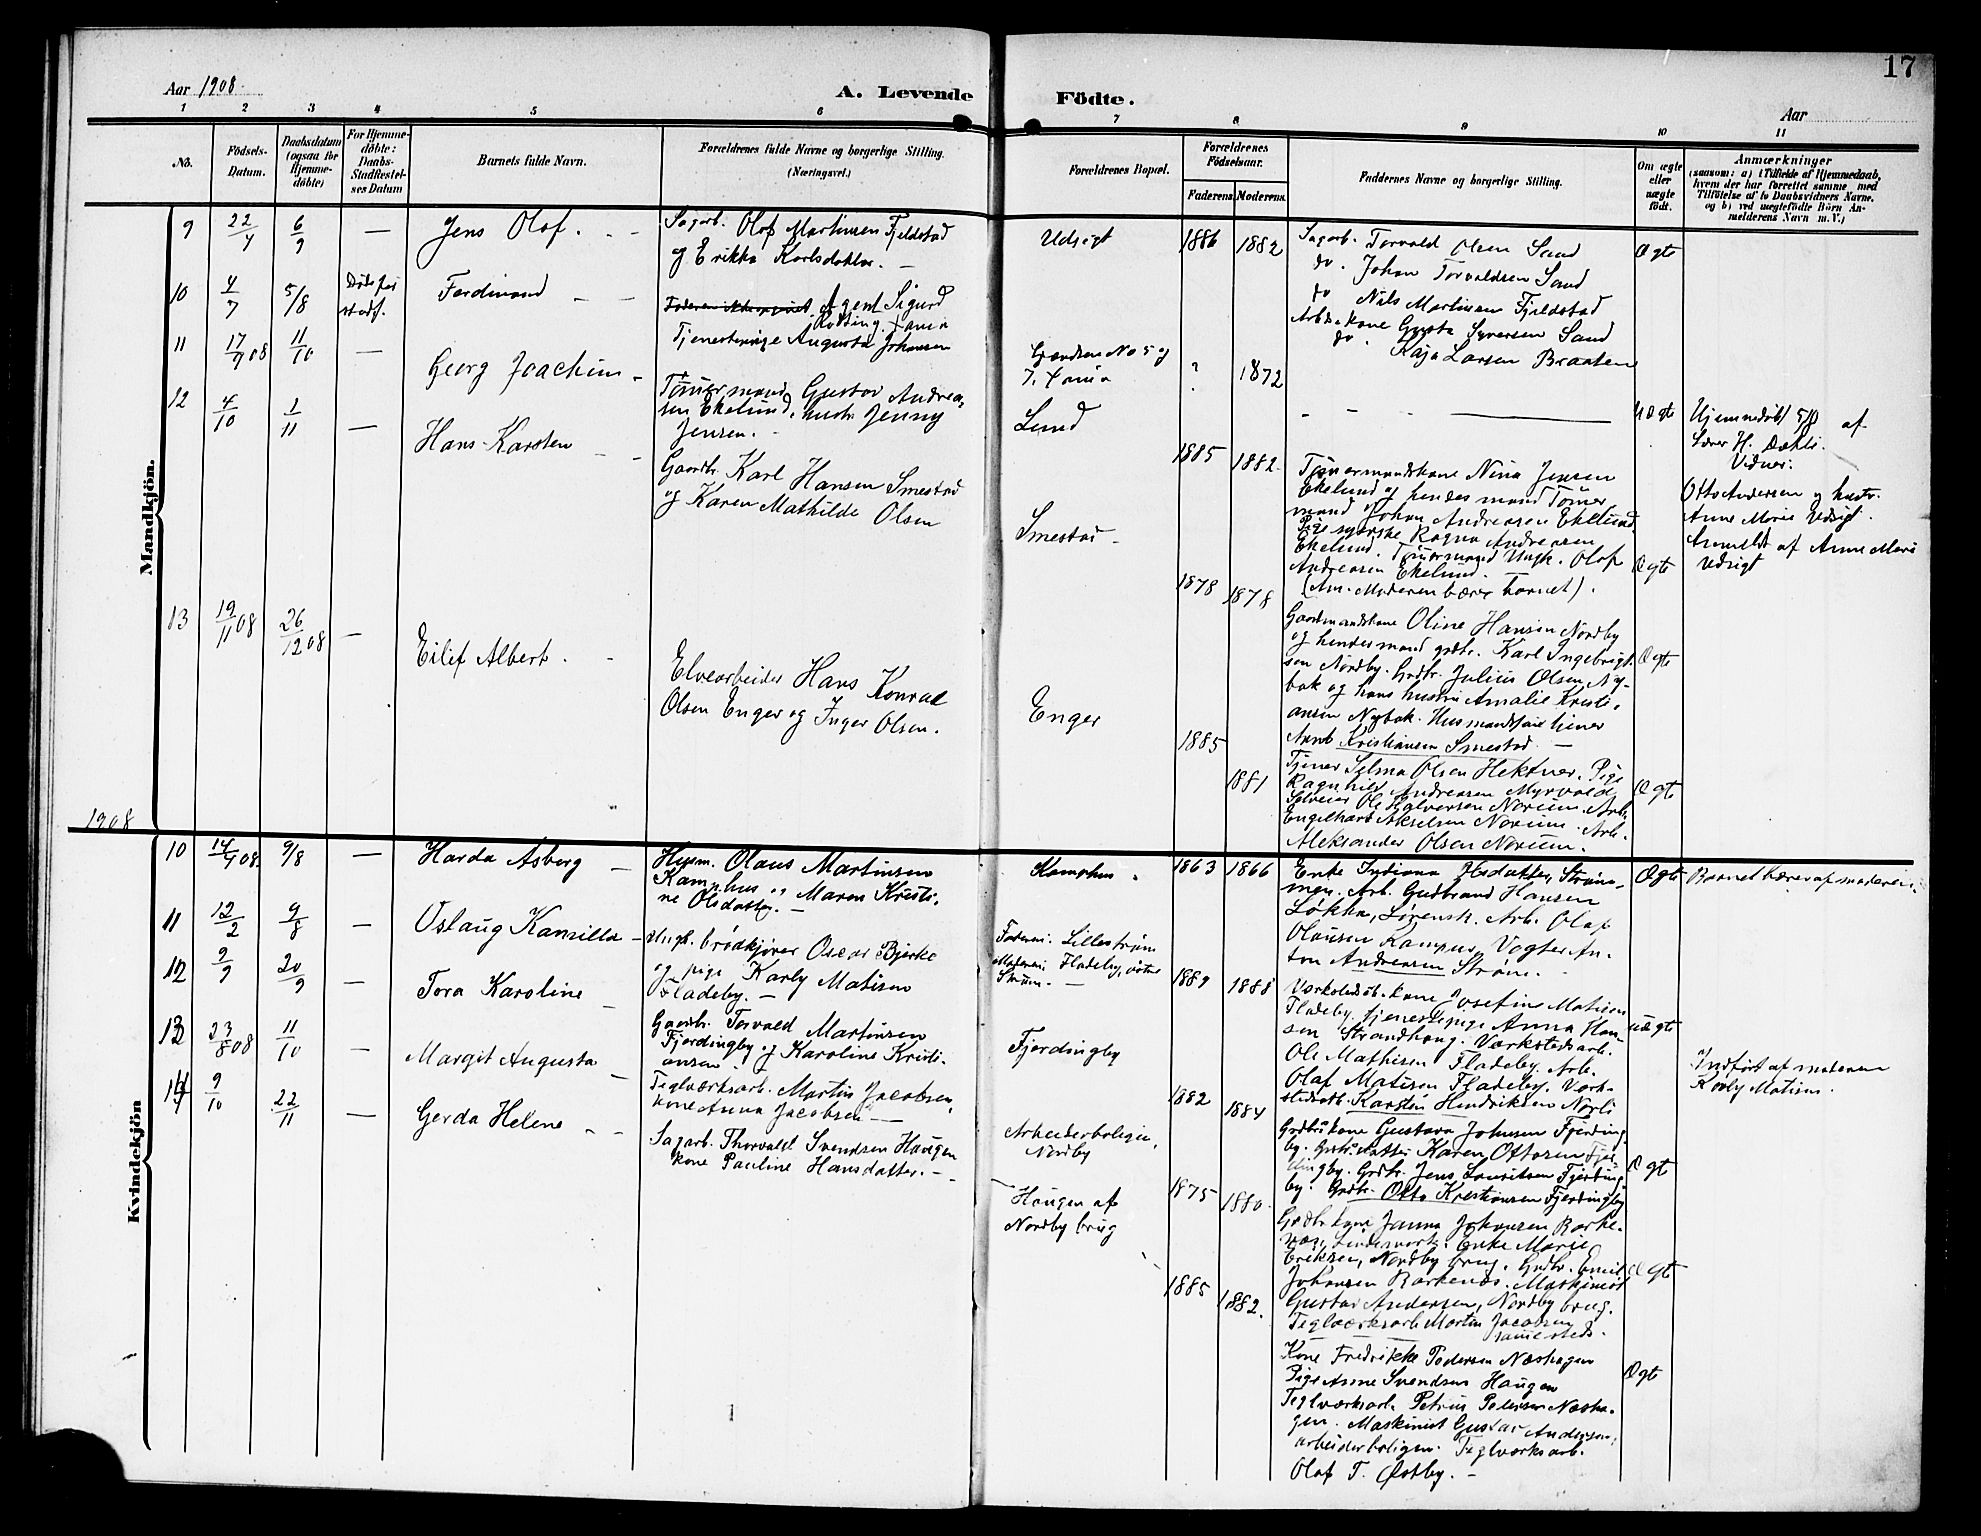 17
Aar 1908.
A. Levende Födte.
Aar
1 2 3 4 5 6 7 8 9 10 11
No.
Födsels-Datum.
Daabsdatum (ogsaa for Hjemmedöbte)
For Hjemmedöbte: Daabs-Stadfestelses Datum
Barnets fulde Navn.
Forældrenes fulde Navne og borgerlige Stilling. (Næringsvei.)
Forældrenes Bopæl.
Forældrenes Födselsaar.
Faderens Moderens
Faddernes Navne og borgerlige Stilling.
Om ægte eller uægte födt.
Anmærkninger
(saasom: a) i Tilfælde af Hjemmedaab, hvem der har forrettet samme med Tilföielse af to Daabsvidners Navne, og b) ved uægtefödte Börn Anmelderens Navn m. V.)
Mandkjön.
9 22/4 6/9 — Jens Olaf.
Sagarb. Olaf Martinsen Fjeldstad
og Erikka Karlsdatter. —
Udsigt 1886 1882
Sagarb. Torvald Olsen Sand
do. Johan Torvaldsen Sand
do Nils Martinsen Fjeldstad
Arbs. kone Gusta Syversen Sand
do. Kaja Larsen Braaten
Ægte
10 4/7 5/8 Ferdinand
Agent Sigurd
Tjenestepige Augusta Johansen
Grændsen No 5 og
7, ? 1872
Uægte
Hjemmedøbt 5/8 af
Lærer H.
Vidner:
Otto Andersen og hustr.
Anne Marie Udsigt.
Anmeldt af Anne Marie
Udsigt
11 17/9 08 11/10 — Georg Joachim
Tømmermand Gustav Andrea-
sen Ekelund, hustr. Jenny
Jensen.
Lund
1885 1882.
Tømermandskone Nina Jensen
Ekelund og hendes mand Tømer
mand Johan Andreasen Ekelund.
Pige Ragna Andreasen
Ekelund. Tømermand Ungk. Olaf
Andreasen Ekelund.
(Anm. Moderen bærer barnet).
Ægte
12 4/10 1/11 — Hans Karsten
Gaardbr. Karl Hansen Smestad
og Karen Mathilde Olsen
Smestad
1878 1878
Gaardmandskone Oline Hansen Nordby
og hendes mand grdbr. Karl Ingebrigt-
sen Nordby. Grdbr. Julius Olsen Ny-
bak og hans hustru Amalie Kristi-
ansen Nybak. Husmandstjener
Arnt Kristiansen Smestad. —
Ægte
13 19/11 08 26/12 08 — Eilef Albert.
Elvearbeider Hans Konrad
Olsen Enger og Inger Olsen.
Enger
1885 1881
Tjener Selma Olsen Hektner. Pige
Ragnhild Andreasen Myrvold
Ole Halvorsen Norum. Arb.
Engelhart Akselsen Norum. Arb.
Aleksander Olsen Norum.
Ægte
1908
Kvindekjön
10 14/4 08. 9/8 — Harda Asberg
Husm. Olaus Martinsen
Kamphus og Maren Kristi-
ne Olsdatter. —
Kamphus
1863 1866
Enke Indiana Olsdatter, Strøm-
men. Arb. Gudbrand Hansen
Løkka, Lørensk. Arb. Olaf
Olausen Kampus, Vogter An-
ton Andreasen Strøm.
Ægte
Barnet bæres af moderen.
11 12/2 9/8 — Aslaug Kamilla
Ungk. brødkjører Oscar Bjerke
og pige Karly Matisen
Fladeby. —
Faderen: Lillestrøm
Moderen: Fladeby, østre
Strøm. —
1889 1888
Værkstedsarb. kone Josefine Matisen
Fladeby. tjenestepige Anna Han-
sen Strandhaug. Værkstedsarb.
Ole Mathisen Fladeby. Arb.
Olaf Matisen Fladeby. Værk-
stedsarb. Karsten Hendriksen Norli
uægte
Indført af moderen
Karly Matisen.
12 9/9 20/9 — Tora Karoline
Gaardbr. Torvald Martinsen
Fjerdingby og Karoline Kristi-
ansen.
Fjerdingby
1882 1884
Grdbr.s kone Gustava Johnsen Fjerding-
by. Grdbr. datter Karen Ottosen Fjer
dingby. Grdbr. Jens Lauritsen Fjerding-
by. Grdbr. Otto Kristiansen Fjerdingby
Ægte
13 23/8 08 11/10 — Margit Augusta
Teglværksarb. Martin Jacobsen,
kone Anna Jacobsen —
Arbeiderboligen,
Nordby
1875 1880
Grdbr. kone Janna Johansen Barke-
næs, Enke Marie
Eriksen, Nordby brug. Grdbr. Emil
Johansen Barkenæs. Maskinist
Gustav Andersen, Nordby brug.
Teglværksarb. Martin Jacobsen
sammesteds.
Ægte
14 9/10 22/11 — Gerda Helene
Sagarb. Thorvald Svendsen Haugen
kone Pauline Hansdatter. —
Haugen af
Nordby brug
1885 1882.
Kone Fredrikke Pedersen Næshagen
Pige Anne Svendsen Haugen
Teglværksarb. Petrus Pedersen Næsha-
gen. Maskinist Gustav Andersen,
arbeiderboligen. Teglværksarb.
Olaf T. Østby. —
Ægte